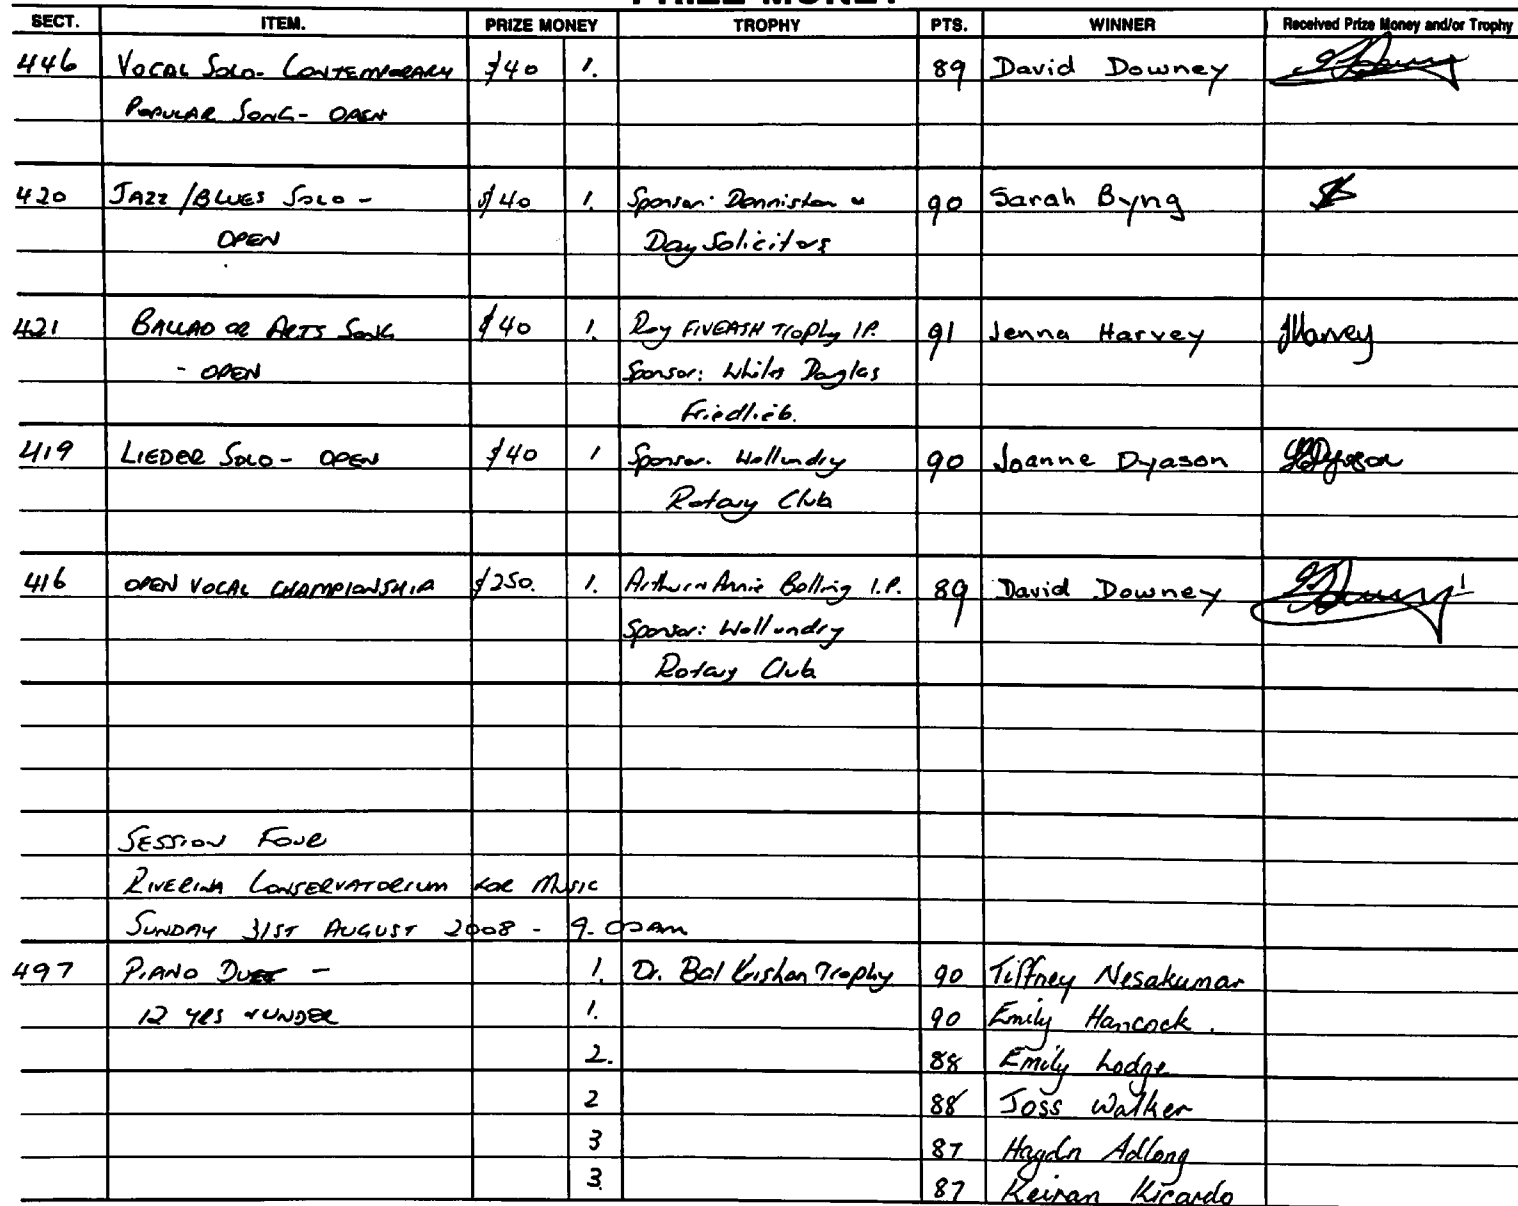 PRIZE MONEY
SECT. ITEM. PRIZE MONEY TROPHY PTS. WINNER Received Prize Money and/or Trophy
446 VOCAL SOLO- CONTEMPORARY $40 1. 89 David Downey
POPULAR SONG- OPEN
420 JAZZ/BLUES SOLO - $40 1. Sponsor: Denniston & 90 Sarah Byng
OPEN Day Solicitors
421 BALLAD OR ARTS SONG $40 1. Roy FIVEASH Trophy I.P. 91 Jenna Harvey JHarvey
- OPEN Sponsor: Whites Douglas
Friedlieb.
419 LIEDER SOLO - OPEN $40 1 Sponsor. Wollundry 90 Joanne Dyason JDyason
Rotary Club
416 OPEN VOCAL CHAMPIONSHIP $250. 1. Arthur & Annie Bolling I.P. 89 David Downey
Sponsor: Wollundry
Rotary Club
SESSION FOUR
RIVERINA CONSERVATORIUM FOR MUSIC
SUNDAY 31ST AUGUST 2008 - 9.00AM
497 PIANO DUET - 1. Dr. Bal Krishan Trophy 90 Tiffney Nesakumar
12 YRS & UNDER 1. 90 Emily Hancock.
2. 88 Emily Lodge
2 88 Joss Walker
3 87 Haydn Adlong
3. 87 Keiran Ricardo